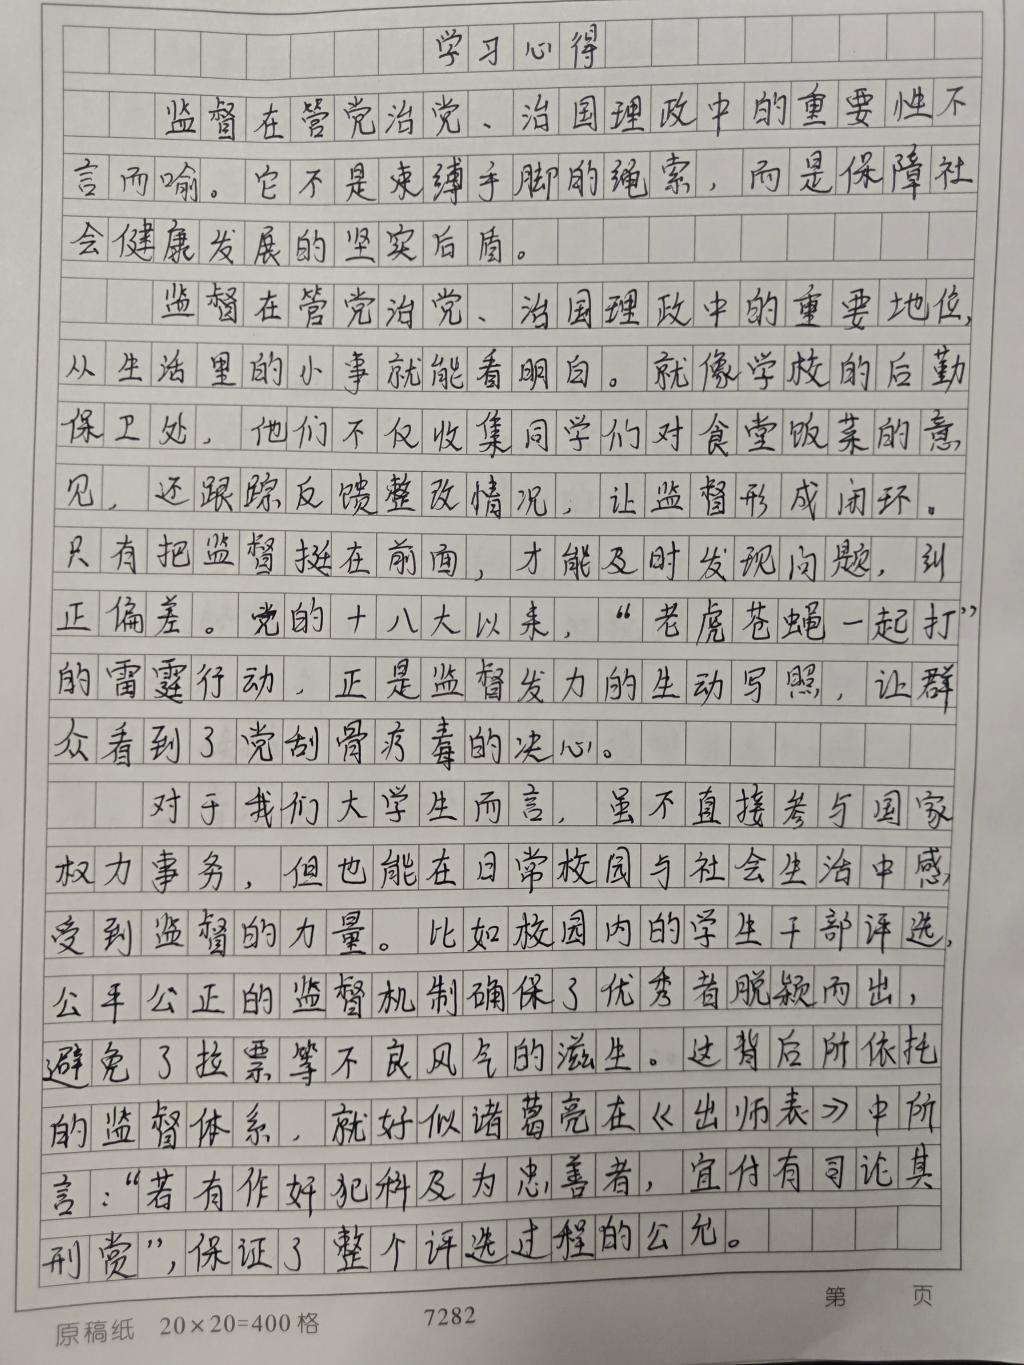 学习心得
监督在管党治党、治国理政中的重要性不
言而喻。它不是束缚手脚的绳索，而是保障社
会健康发展的坚实后盾。
监督在管党治党、治国理政中的重要地位，
从生活里的小事就能看明白。就像学校的后勤
保卫处，他们不仅收集同学们对食堂饭菜的意
见，还跟踪反馈整改情况，让监督形成闭环。
只有把监督挺在前面，才能及时发现问题，纠
正偏差。党的十八大以来，“老虎苍蝇一起打”
的雷霆行动，正是监督发力的生动写照，让群
众看到了党刮骨疗毒的决心。
对于我们大学生而言，虽不直接参与国家
权力事务，但也能在日常校园与社会生活中感
受到监督的力量。比如校园内的学生干部评选，
公平公正的监督机制确保了优秀者脱颖而出，
避免了拉票等不良风气的滋生。这背后所依托
的监督体系，就好似诸葛亮在《出师表》中所
言：“若有作奸犯科及为忠善者，宜付有司论其
刑赏”，保证了整个评选过程的公允。
第 页
原稿纸 20×20=400格 7282